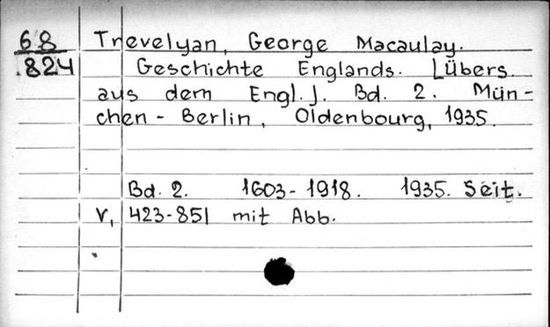 68 Trevelyan, George Macaulay.
824 Geschichte Englands. [Übers.
aus dem Engl.]. Bd. 2. Mün-
chen - Berlin, Oldenbourg, 1935.
Bd. 2. 1603-1918. 1935. Seit.
V, 423-851 mit Abb.